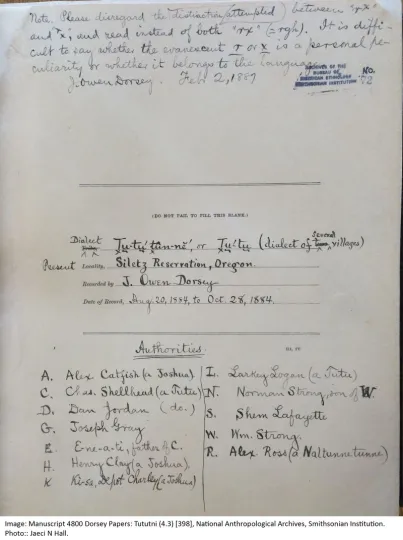 Note. Please disregard the distinction (attempted) between "rx"
and "x", and read instead of both "rx" (=rgh). It is diffi-
cult to say whether the evanescent r or x is a personal pe-
culiarity or whether it belongs to the language.
J. Owen Dorsey. Feb 2, 1887
ARCHIVES OF THE
BUREAU OF
AMERICAN ETHNOLOGY
SMITHSONIAN INSTITUTION
No.
(DO NOT FAIL TO FILL THIS BLANK.)
Dialect Tu-tu' tûn-nĕ', or Tu'tu (dialect of several villages)
Present Locality, Siletz Reservation, Oregon.
Recorded by J. Owen Dorsey
Date of Record, Aug. 20, 1884, to Oct. 28, 1884.
Authorities.
A. Alex Catfish (a Joshua)
C. Chas. Shellhead (a Tutu)
D. Dan Jordan (do.)
G. Joseph Gray
E. E-ne-a-ti, father of C.
H. Henry Clay (a Joshua).
K Ki-se, Depot Charley (a Joshua)
L. Larkey Logan (a Tutu)
N. Norman Strong, son of W.
S. Shem Lafayette
W. Wm. Strong.
R. Alex Ross (a Naltunnetunne)
Image: Manuscript 4800 Dorsey Papers: Tututni (4.3) [398], National Anthropological Archives, Smithsonian Institution.
Photo:: Jaeci N Hall.